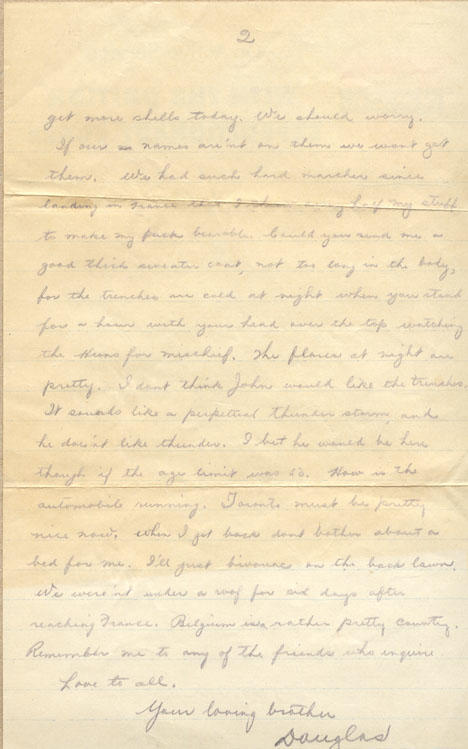 2
get more shells today. We should worry.
If our names are'nt on them we wont get
them. We had such hard marches since
landing in France that I threw away half my stuff
to make my pack bearable. Could you send me a
good thick sweater coat, not too long in the body,
for the trenches are cold at night when you stand
for a hour with your head over the top watching
the Huns for mischief. The flares at night are
pretty. I dont think John would like the trenches.
It sounds like a perpetual thunder storm and
he does'nt like thunder. I bet he would be here
though if the age limit was 53. How is the
automobile running. Toronto must be pretty
nice now. When I get back dont bother about a
bed for me. I'll just bivouac on the back lawn.
We were'nt under a roof for six days after
reaching France. Belgium is a rather pretty country.
Remember me to any of the friends who inquire
Love to all.
Your loving brother
Douglas